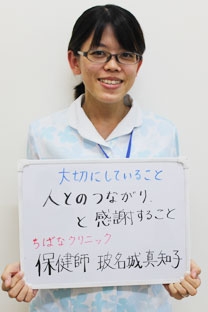 大切にしていること
人とのつながり、
と感謝すること
ちばなクリニック
保健師 玻名城真知子